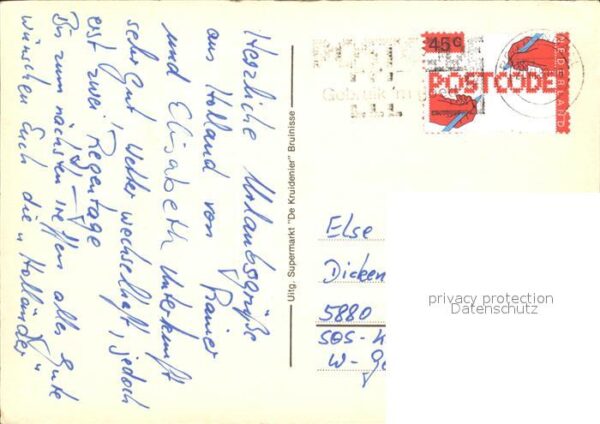 Herzliche Urlaubsgrüße
aus Holland von Rainer
und Elisabeth Unterkunft
sehr gut, Wetter wechselhaft, jedoch
erst zwei Regentage
Bis zum nächsten treffen alles Gute
wünschen Euch die "Holländer"
Uitg. Supermarkt "De Kruidenier" Bruinisse
POSTCODE
Gebruik 'm
45c
POSTCODE
NEDERLAND
Else
Dicken
5880
SOS-
W-
privacy protection
Datenschutz